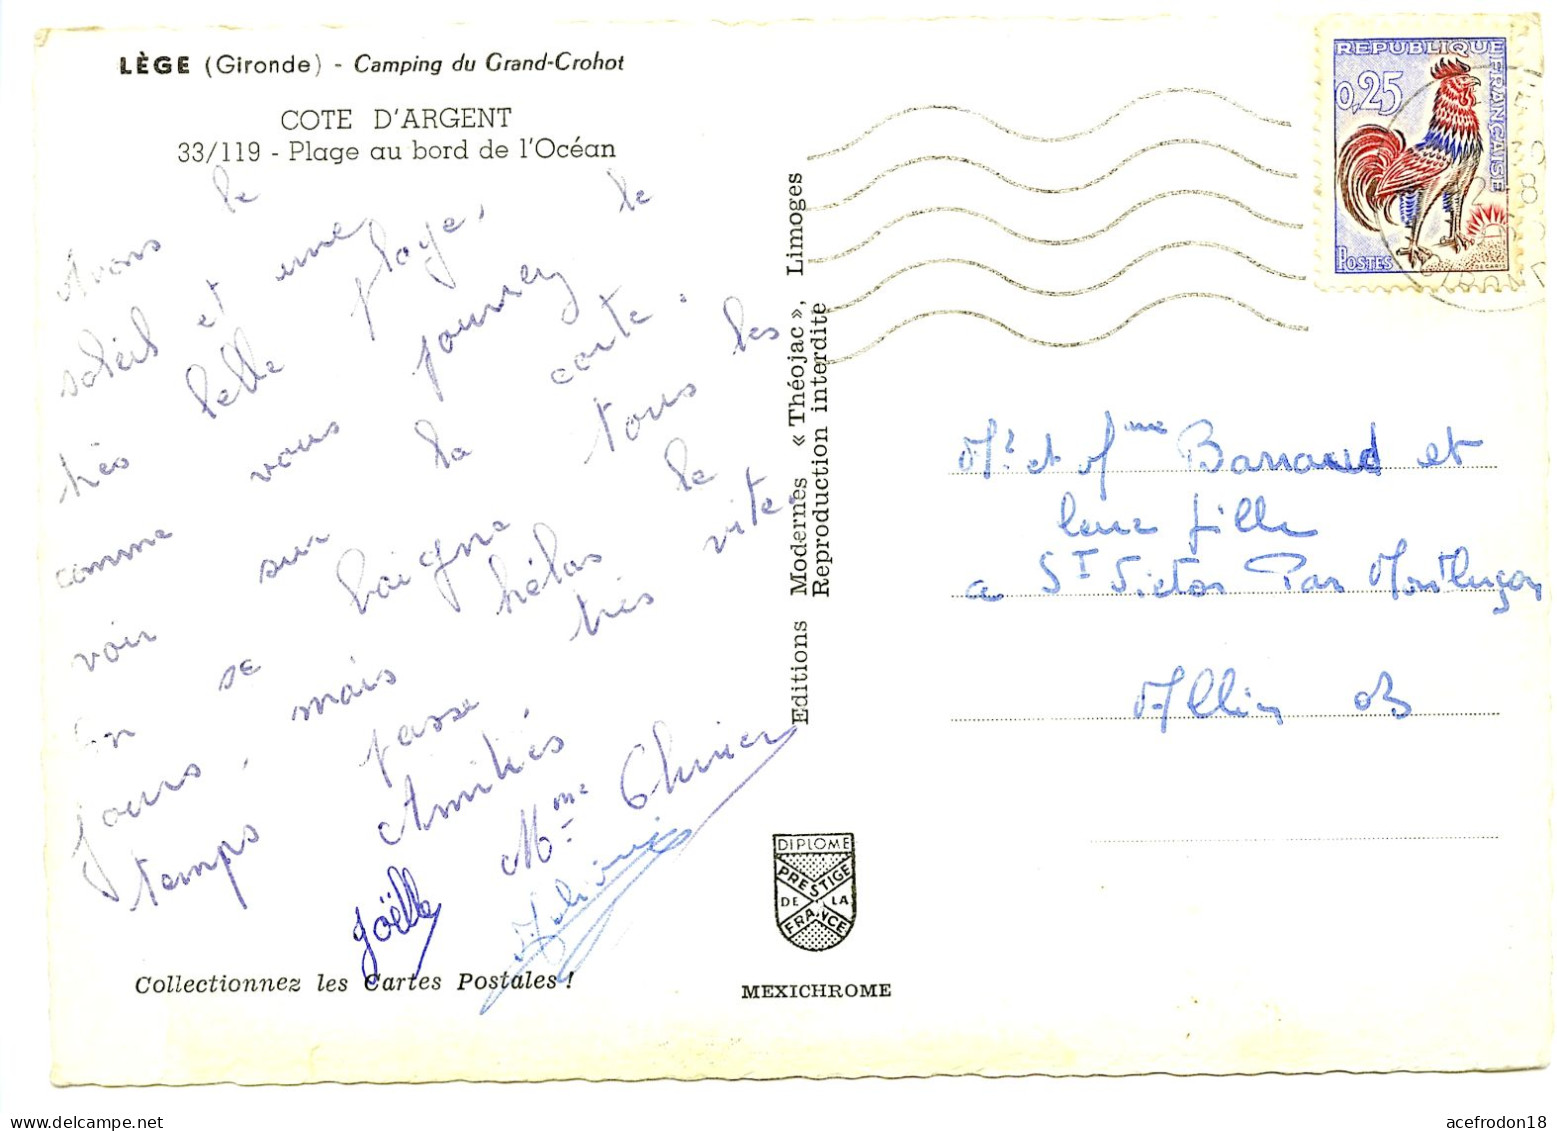 LÈGE (Gironde) - Camping du Grand-Crohot
COTE D'ARGENT
33/119 - Plage au bord de l'Océan
Avons le
soleil et une
très belle plage,
comme vous pouvez le
voir sur la carte.
On se baigne tous les
jours, mais hélas le
temps passe très vite.
Amitiés
Mme
Joëlle
Collectionnez les Cartes Postales !
Editions Modernes « Théojac », Limoges
Reproduction interdite
DIPLOME
PRESTIGE
DE LA
FRANCE
MEXICHROME
REPUBLIQUE
FRANÇAISE
0,25
POSTES
GIRONDE
Mr et Mme Barraud et
leur fille
a St Victor Par Montluçon
Allier 03
acefrodon18